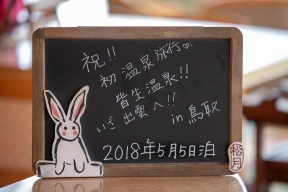 祝!!
初温泉旅行♡
皆生温泉!!
いざ出雲へ!! in 鳥取
2018年5月5日泊
松月